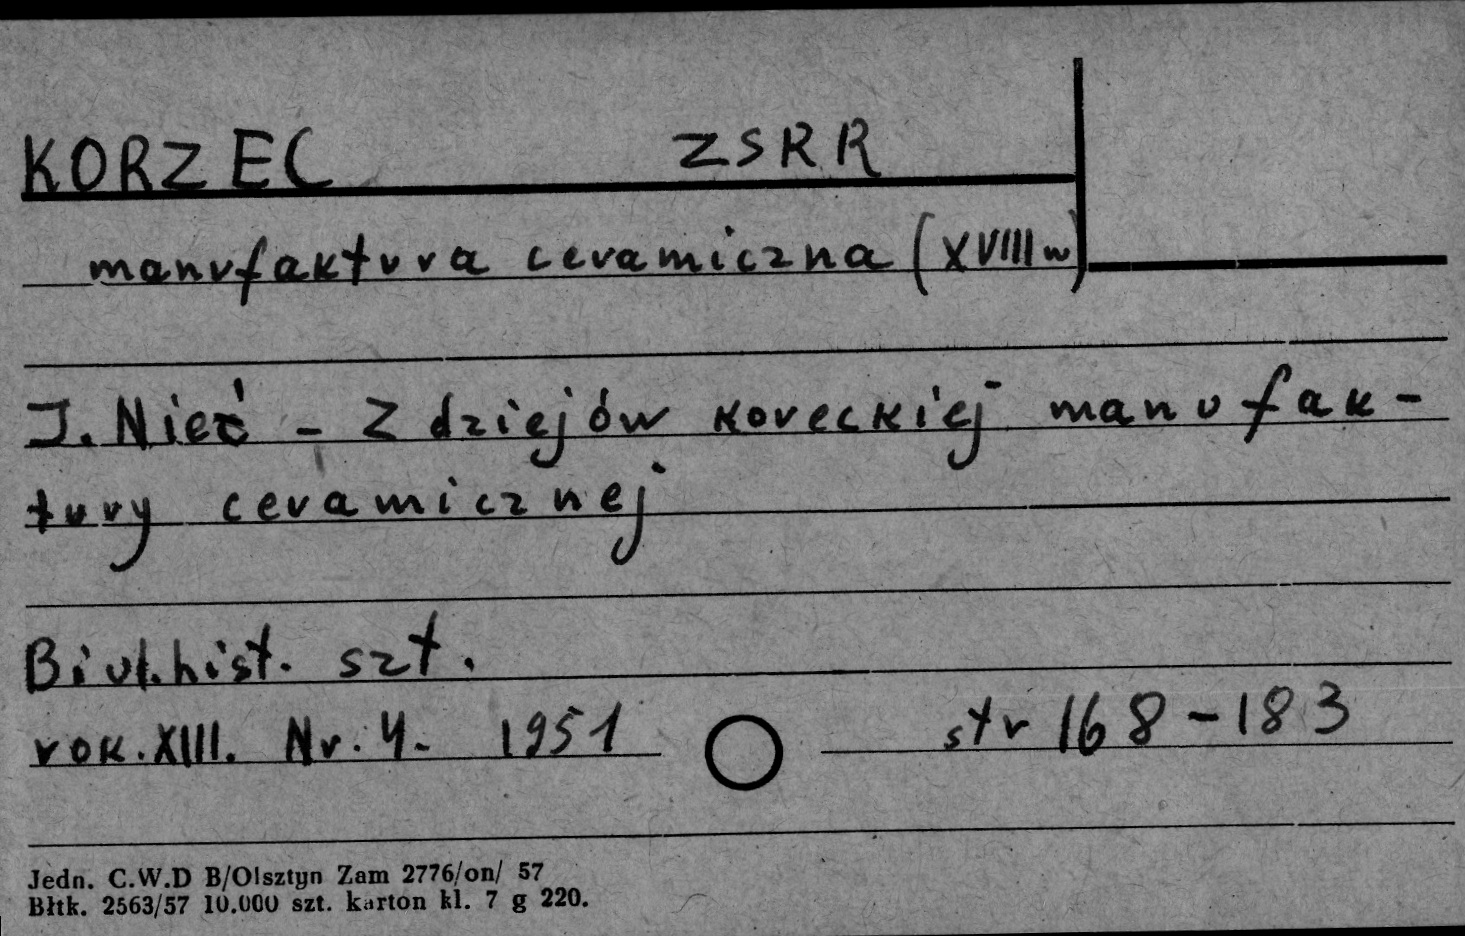 KORZEC ZSRR
manufaktura ceramiczna (XVIII w)
J. Nieć - Z dziejów koreckiej manufak-
tury ceramicznej
Biul. hist. szt.
rok. XIII. Nr. 4. 1951 str 168-183
Jedn. C.W.D B/Olsztyn Zam 2776/on/ 57
Błtk. 2563/57 10.000 szt. karton kl. 7 g 220.